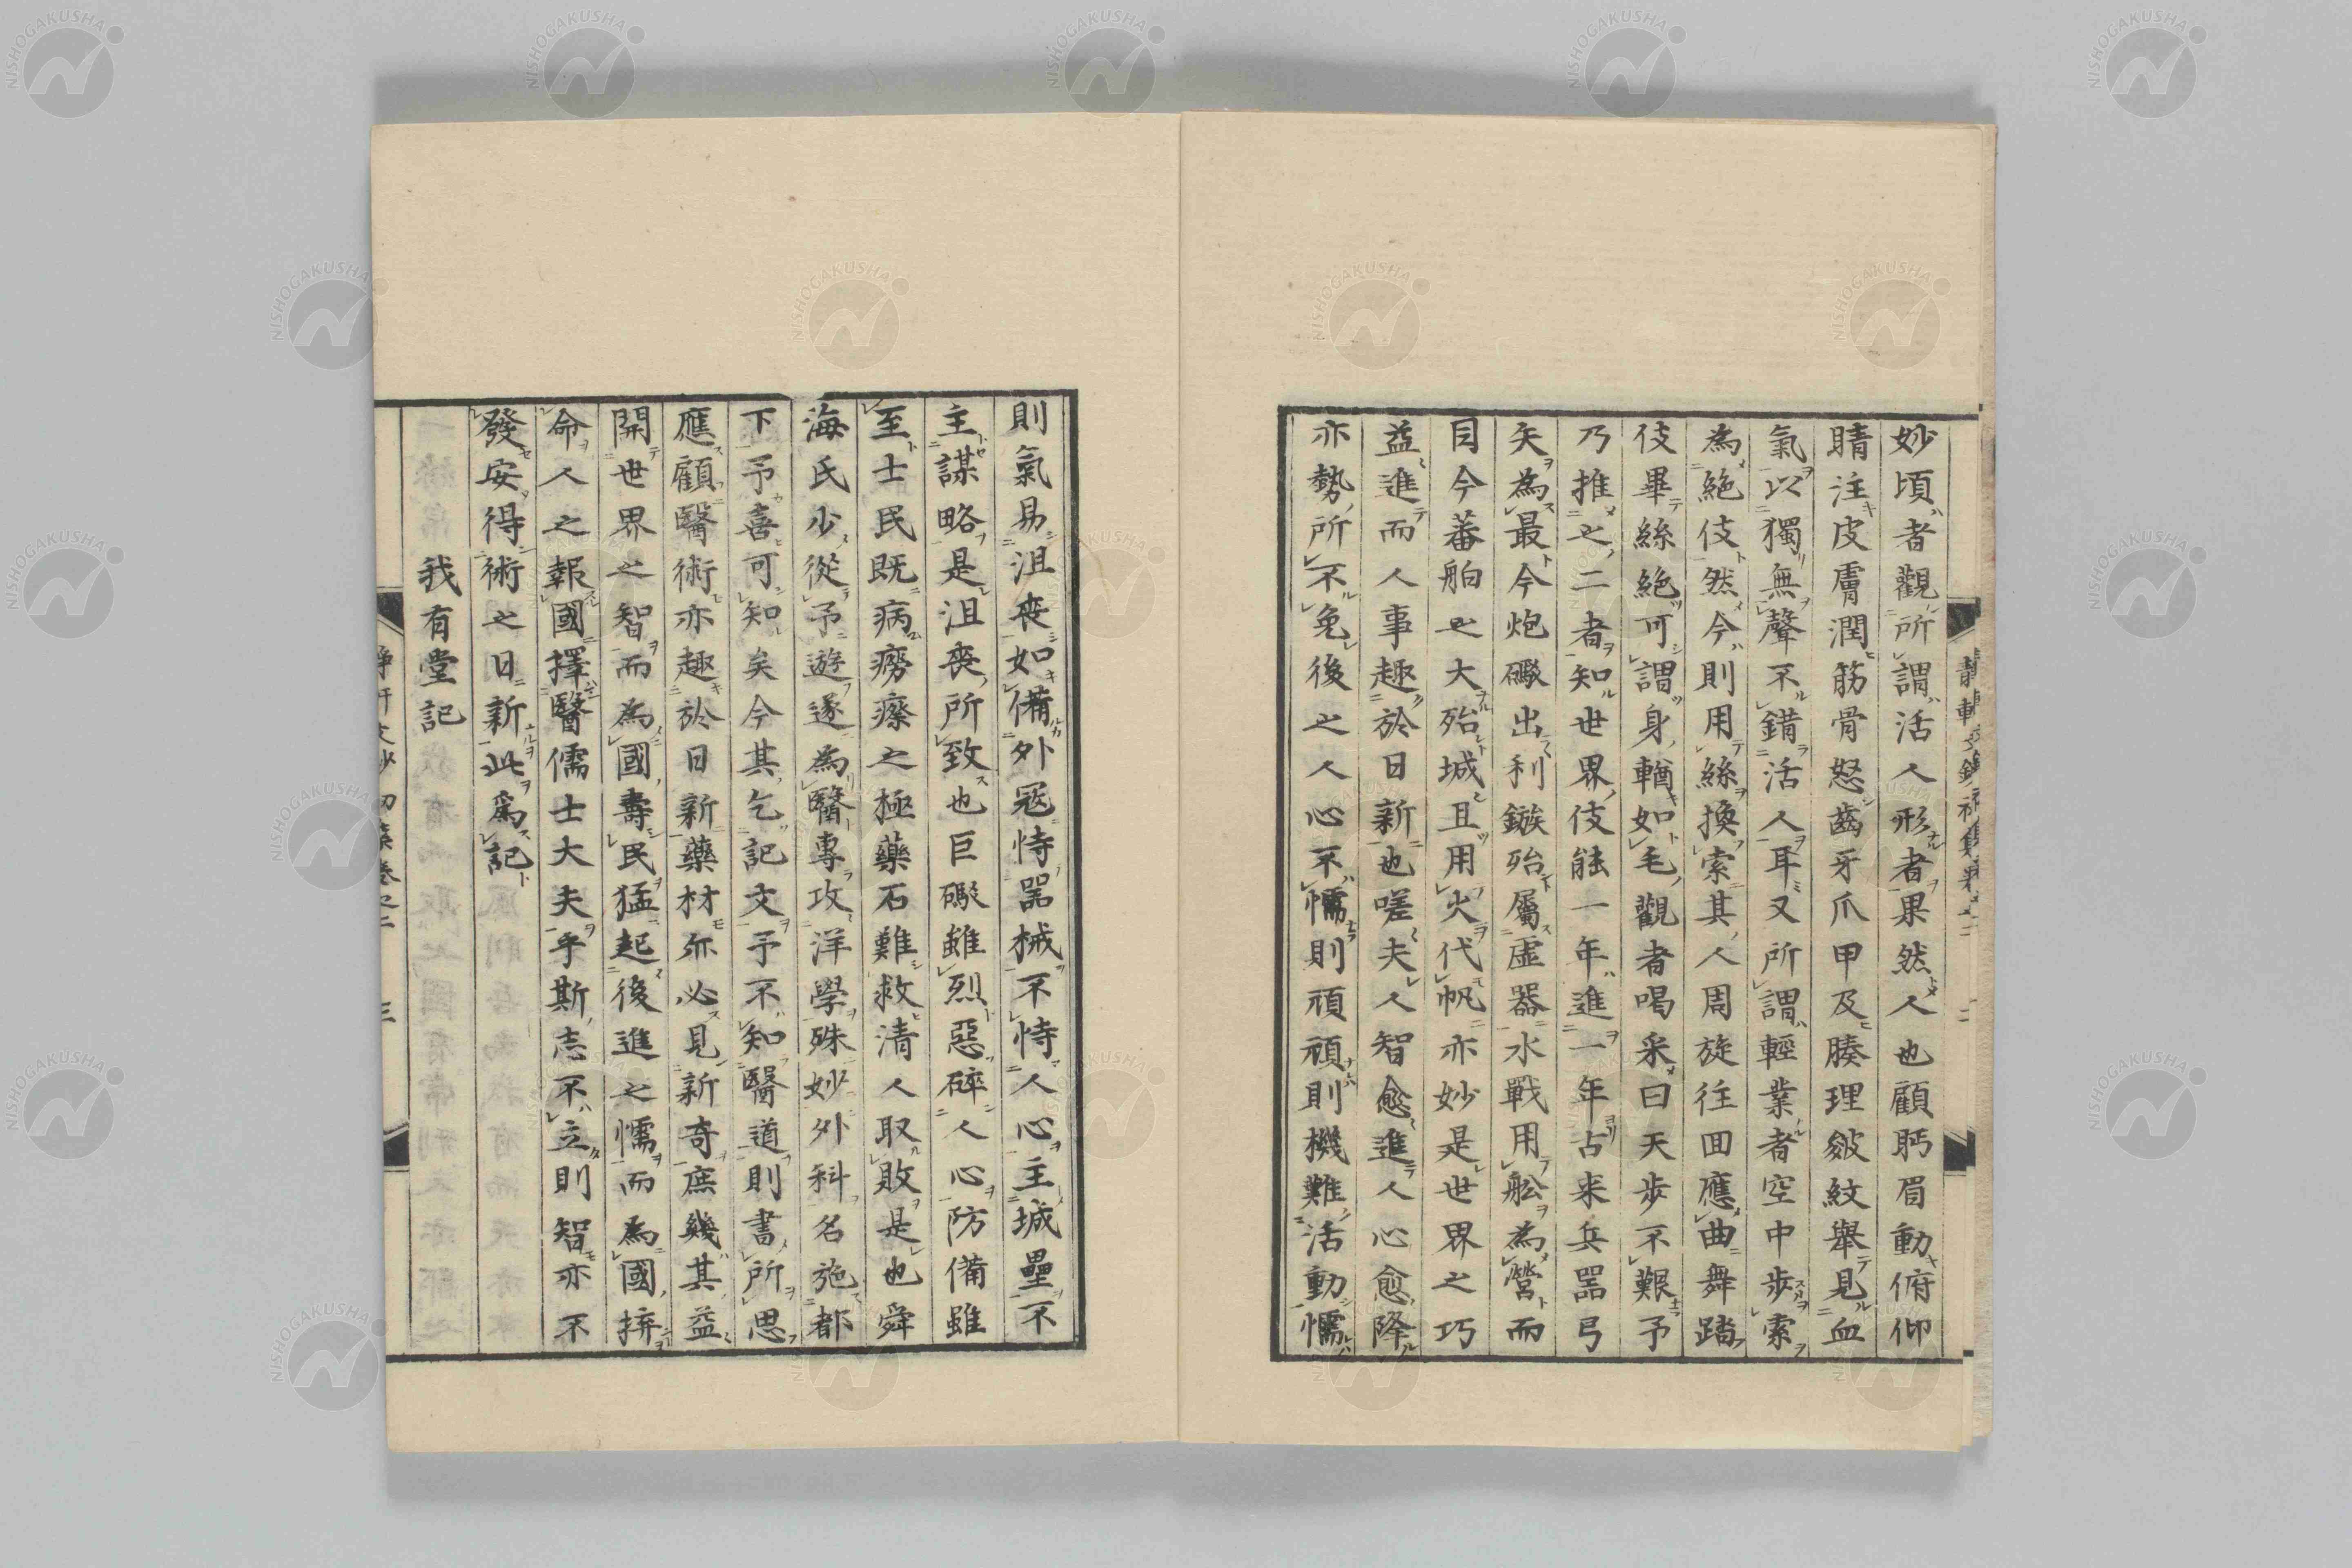 妙頃者觀所謂活人形者果然人也顧眄眉動俯仰
睛注皮膚潤筋骨怒齒牙爪甲及腠理皴紋舉見血
氣以獨無聲不錯活人耳又所謂輕業者空中步索
為絕伎然今則用絲換索其人周旋往回應曲舞踏
伎畢絲絕可謂身輶如毛觀者喝采曰天步不艱予
乃推之二者知世界伎能一年進一年古來兵器弓
矢為最今炮礮出利鏃殆屬虛器水戰用舩為營而
目今蕃舶之大殆城且用火代帆亦妙是世界之巧
益進而人事趣於日新也嗟夫人智愈進人心愈降
亦勢所不免後之人心不懦則頑頑則機難活動懦
則氣易沮喪如備外寇恃器械不恃人心主城壘不
主謀略是沮喪所致也巨礮雖烈惡碎人心防備雖
至士民既病癆瘵之極藥石難救清人取敗是也舜
海氏少從予遊遂為醫專攻洋學殊妙外科名施都
下予喜可知矣今其乞記文予不知醫道則書所思
應顧醫術亦趣於日新藥材亦必見新奇庶幾其益
開世界之智而為國壽民猛起後進之懦而為國擠
命人之報國擇醫儒士大夫乎斯志不立則智亦不
發安得術之日新此為記
我有堂記
NISHOGAKUSHA